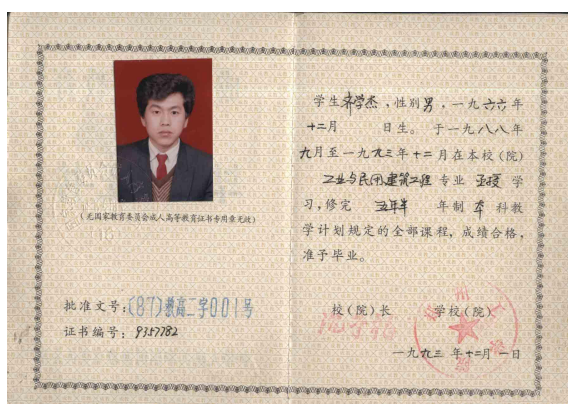 (无国家教育委员会成人高等教育证书专用章无效)
批准文号:(87)教高二字001号
证书编号:9357782
学生齐学杰,性别男,一九六六年
十二月 日生。于一九八八年
九月至一九九三年十二月在本校(院)
工业与民用建筑工程 专业 函授 学
习,修完 五年半 年制 本 科教
学计划规定的全部课程,成绩合格,
准予毕业。
校(院)长 学校(院)
一九九三 年十二月一日